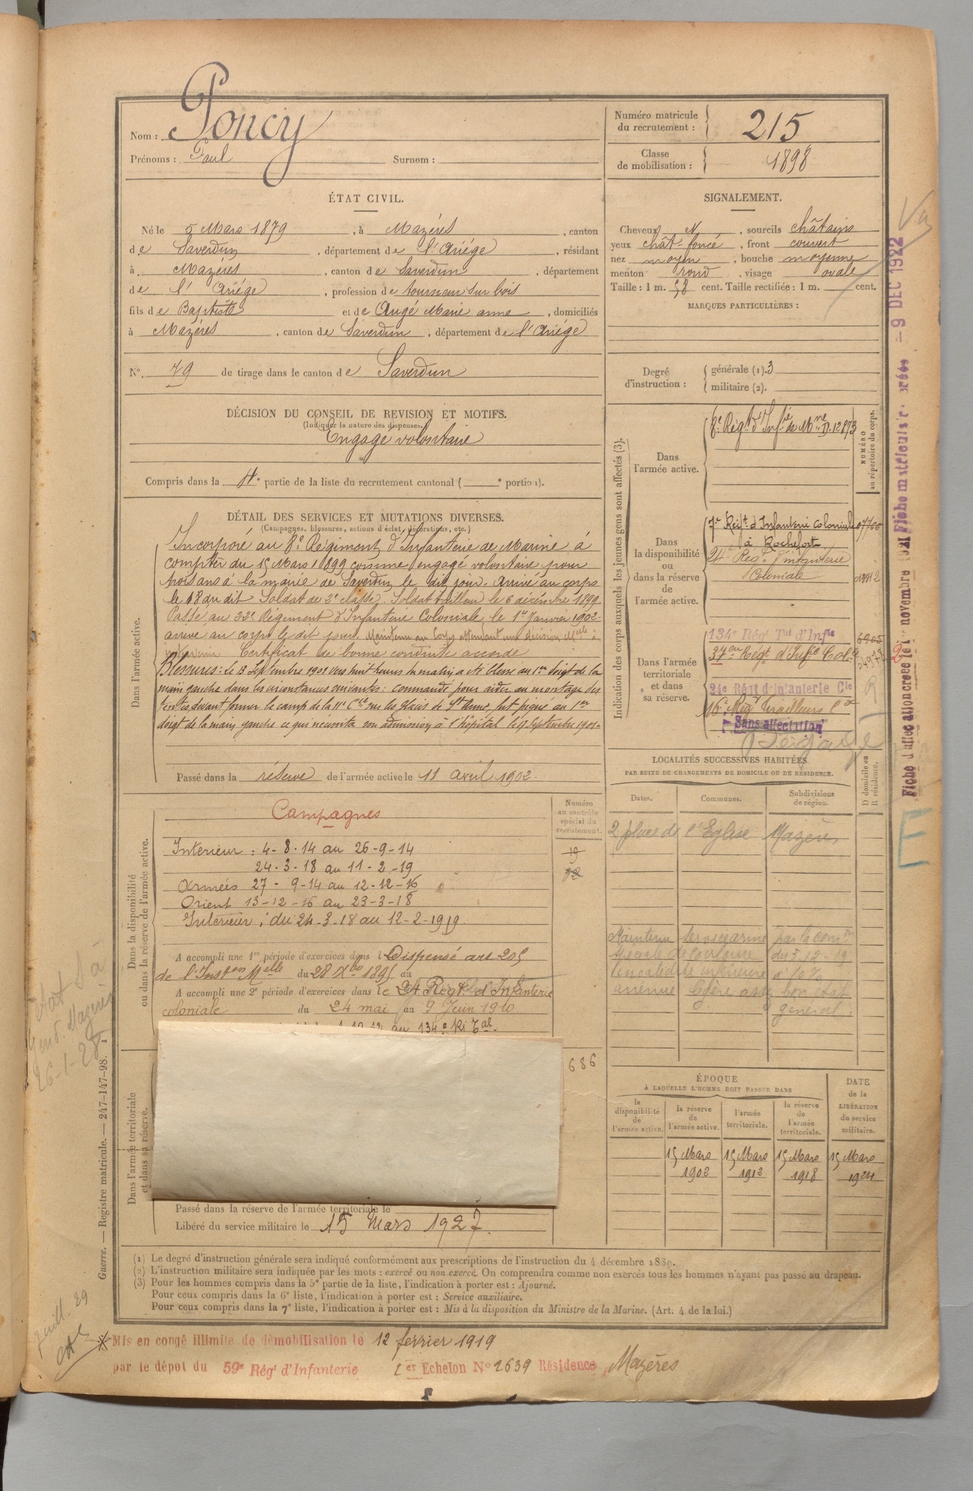 Nom : Poncy
Prénoms : Paul Surnom :
Numéro matricule du recrutement : 215
Classe de mobilisation : 1898
ÉTAT CIVIL.
Né le 5 Mars 1879, à Mazères, canton
de Saverdun, département de l'Ariége, résidant
à Mazéres, canton de Saverdun, département
de l'Ariége, profession de tourneur sur bois
fils de Baptiste et de Augé Marie anne, domiciliés
à Mazéres, canton de Saverdun, département de l'Ariége
N°. 79 de tirage dans le canton de Saverdun
SIGNALEMENT.
Cheveux N, sourcils châtains
yeux chât. foncé, front couvert
nez moyen, bouche moyenne
menton rond, visage ovale
Taille : 1 m. 58 cent. Taille rectifiée : 1 m. cent.
MARQUES PARTICULIÈRES :
Degré d'instruction : générale (1). 3
militaire (2).
DÉCISION DU CONSEIL DE REVISION ET MOTIFS.
(Indiquer la nature des dispenses.)
Engagé volontaire
Compris dans la 4e partie de la liste du recrutement cantonal ( e portion).
DÉTAIL DES SERVICES ET MUTATIONS DIVERSES.
(Campagnes, blessures, actions d'éclat, décorations, etc.)
Dans l'armée active.
Incorporé au 8e Régiment d'Infanterie de Marine à
compter du 15 Mars 1899 comme engagé volontaire pour
trois ans à la mairie de Saverdun le dit jour. Arrivé au corps
le 18 du dit Soldat de 2e classe. Soldat le 6 décembre 1899.
Passé au 32e Régiment d'Infanterie Coloniale le 1er Janvier 1902
arrivé au corps le dit jour. Maintenu au Corps
Certificat de bonne conduite accordé
Blessures : le 8 Septembre 1901 vers huit heures du matin a été blessé au 1er doigt de la
main gauche dans les circonstances suivantes : commandé pour aider au montage des
tentes devant former le camp de la 11e Cie sur les glacis de, fut piqué au 1er
doigt de la main gauche ce qui nécessita son admission à l'hôpital le 9 Septembre 1901.
Passé dans la réserve de l'armée active le 11 avril 1902.
Indication des corps auxquels les jeunes gens sont affectés (3).
Dans l'armée active.
8e Régt d'Infie de Mne D. 12873
NUMÉRO au répertoire du corps.
Dans la disponibilité ou dans la réserve de l'armée active.
7e Reigt d'Infanterie Coloniale 07700
à Rochefort
24e Regt d'infanterie
Coloniale
Dans l'armée territoriale et dans sa réserve.
134e Régt Tal d'Infie
37e Régt d'Infie Cole
24e Régt d'Infanterie Cle
16e Régt Tirailleurs
Sans affectation
LOCALITÉS SUCCESSIVES HABITÉES
PAR SUITE DE CHANGEMENTS DE DOMICILE OU DE RÉSIDENCE.
Dates. Communes. Subdivisions de région. D domicile ou R résidence.
2 place de l'Eglise Mazères
Dans la disponibilité ou dans la réserve de l'armée active.
Numéro au contrôle spécial du recrutement.
Campagnes
Intérieur : 4-8-14 au 26-9-14
24-3-18 au 11-2-19
Armées 27-9-14 au 12-12-16
Orient 13-12-16 au 23-3-18
Intérieur : du 24-3-18 au 12-2-1919
A accompli une 1re période d'exercices dans l Dispensé art 205
de l'Inston Melle du 28 Xbre 1895 au
A accompli une 2e période d'exercices dans le 24 Regt d'Infanterie
coloniale du 24 mai au 9 Juin 1910
au 134e Ri Tal.
686
Dans l'armée territoriale et dans sa réserve.
Passé dans la réserve de l'armée territoriale le
Libéré du service militaire le 15 Mars 1927.
Maintenu service armé par la comon
spéciale de Toulouse du 3-12-19
Invalidité inférieure à 10 %
général.
ÉPOQUE
À LAQUELLE L'HOMME DOIT PASSER DANS
DATE de la LIBÉRATION du service militaire.
la disponibilité de l'armée active. la réserve de l'armée active. l'armée territoriale. la réserve de l'armée territoriale.
15 Mars 1902 15 Mars 1912 15 Mars 1918 15 Mars 1924
(1) Le degré d'instruction générale sera indiqué conformément aux prescriptions de l'instruction du 4 décembre 1889.
(2) L'instruction militaire sera indiquée par les mots : exercé ou non exercé. On comprendra comme non exercés tous les hommes n'ayant pas passé au drapeau.
(3) Pour les hommes compris dans la 5e partie de la liste, l'indication à porter est : Ajourné.
Pour ceux compris dans la 6e liste, l'indication à porter est : Service auxiliaire.
Pour ceux compris dans la 7e liste, l'indication à porter est : Mis à la disposition du Ministre de la Marine. (Art. 4 de la loi.)
Mis en congé illimité de démobilisation le 12 février 1919
par le dépôt du 59e Régt d'Infanterie 1er Echelon N° 2639 Résidence Mazères
Guerre. — Registre matricule. — 247-147-98.
9 DEC 1922
26-1-28